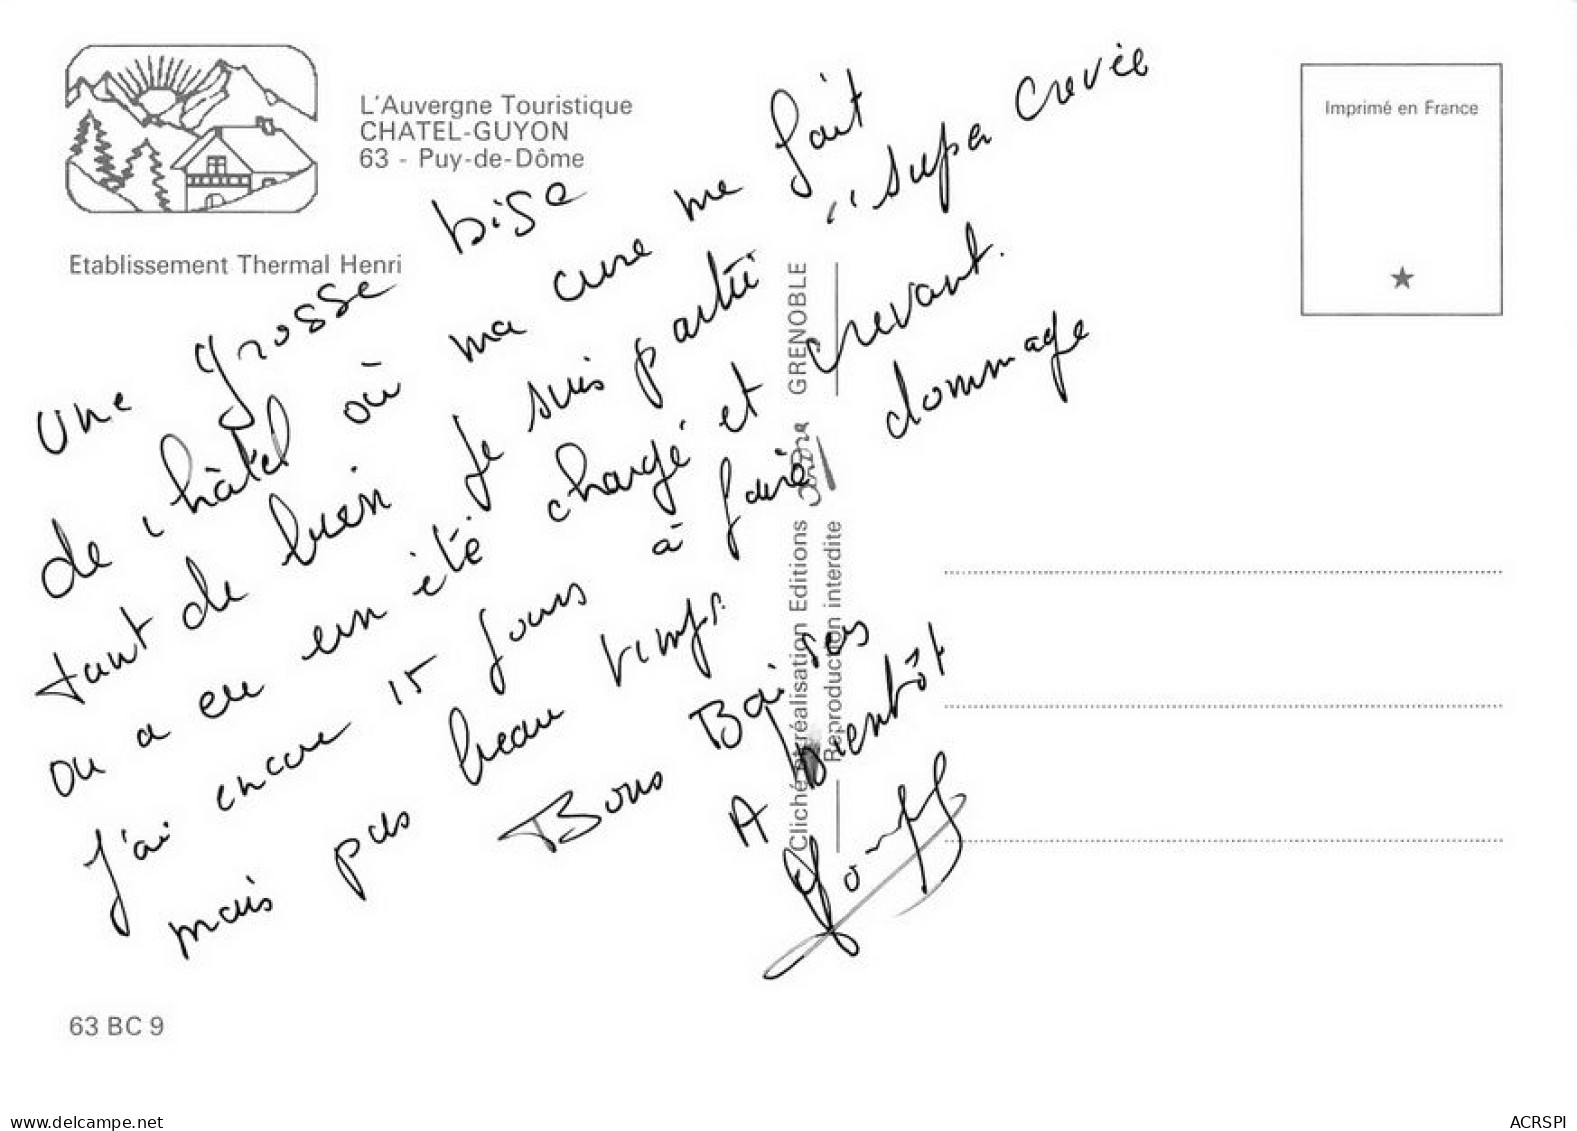 L'Auvergne Touristique
CHATEL-GUYON
63 - Puy-de-Dôme
Etablissement Thermal Henri
Imprimé en France
une grosse bise
de châtel où ma cure me fait
tant de bien je suis partie "super crevée
ou a eu un été chargé et crevant.
J'ai encore 15 jours à faire dommage
mais pas beau temps
Bons Baisers
A Bientôt
Cliché et réalisation Editions GRENOBLE
Reproduction interdite
63 BC 9
www.delcampe.net
ACRSPI